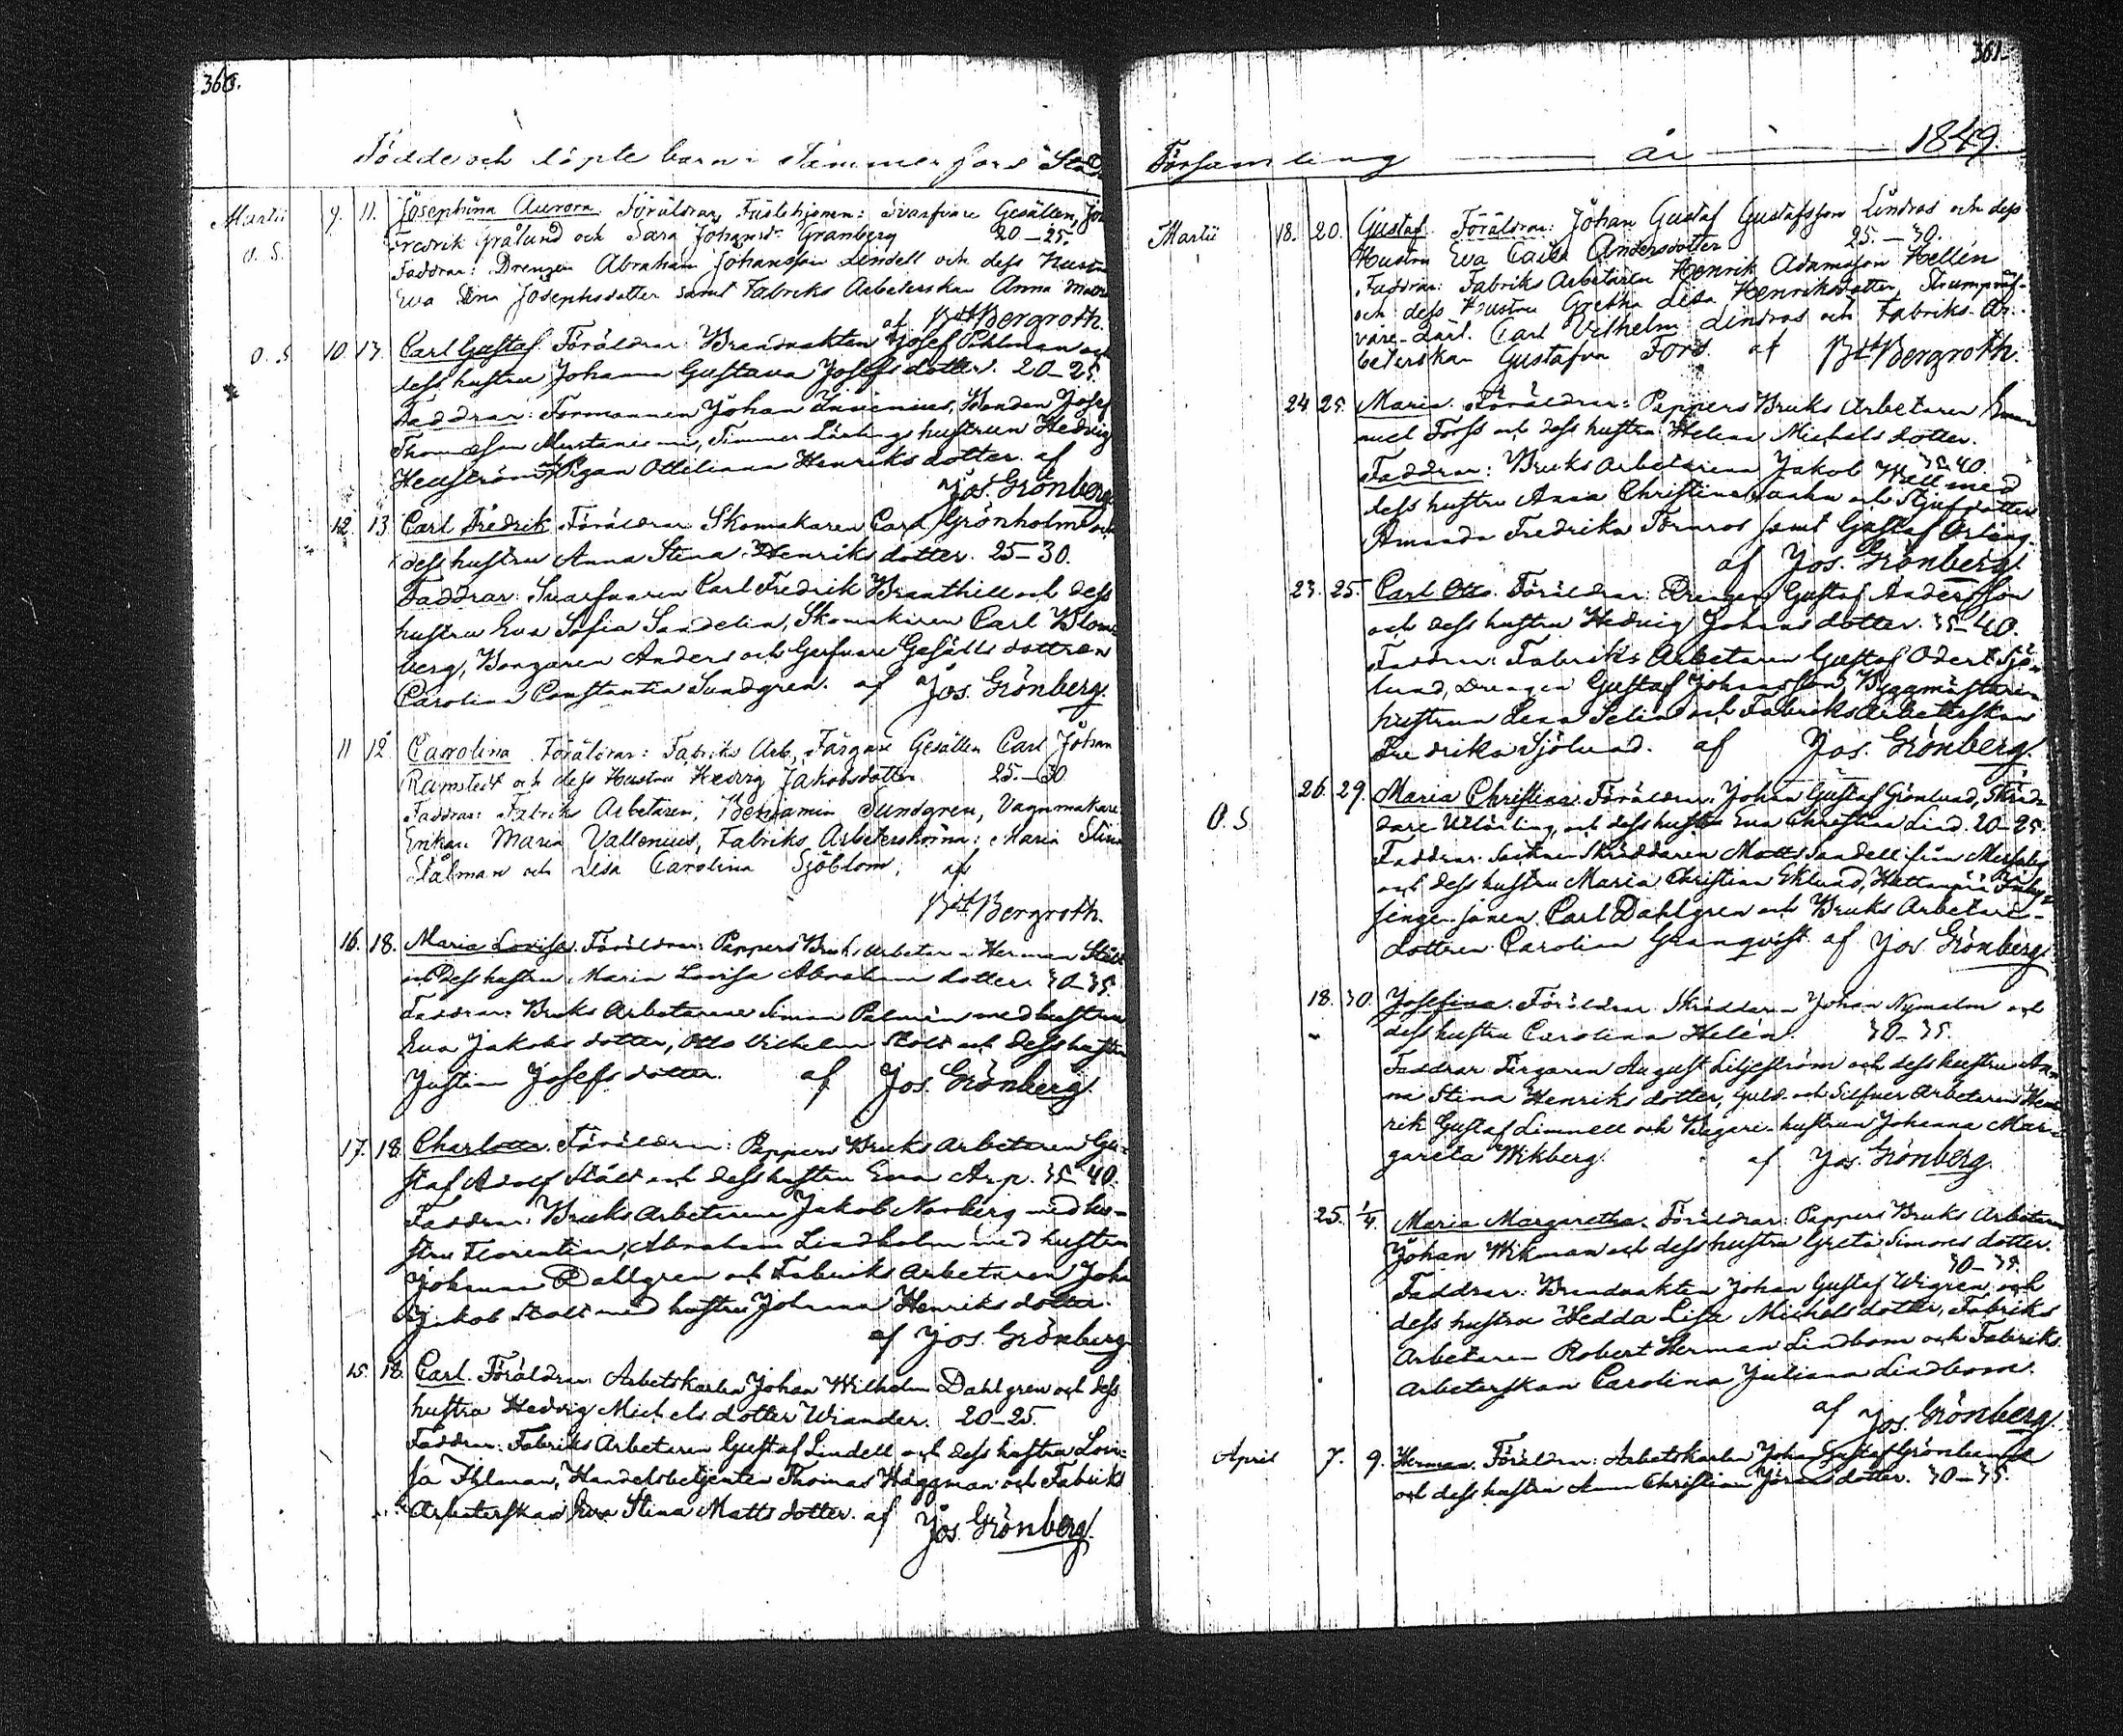 360.
Födde och döpte barn i Tammerfors Stads
Martii 9. 11. Josephina Aurora Föräldrar, Fästehjonen: Svarfvare Gesällen, Joh
O. S. Fredrik Grålund och Sara Johansdr Granberg 20-25.
Faddrar: Drengen Abraham Johansson Lindell och dess Hustru
Eva Stina Josephsdotter samt Fabriks Arbeterskan Anna
af Bdt Bergroth.
O. S. 10. 13. Carl Gustaf. Föräldrar: Brandvakten Josef Pihlman och
dess hustru Johanna Gustava Josefsdotter. 20-25.
Faddrar: Formannen Johan Bonden Josef
Thomasson Mustaniemi, Timmer Lärlings hustrun Hedvig
Henström och Pigan Ottiliana Henriksdotter. af
Jos. Grönberg
12. 13. Carl Fredrik. Föräldrar: Skomakaren Carl Grönholm och
dess hustru Anna Stina Henriksdotter. 25-30.
Faddrar: Svarfvaren Carl Fredrik Branthill och dess
hustru Eva Sofia Sandelin, Skomakaren Carl Blom-
berg, Anders och Garfvare Gesälls dottren
Carolina Constantia Sundgren. af Jos. Grönberg.
11 12 Carolina Föräldrar: Fabriks Arb., Färgare Gesällen Carl Johan
Ramstedt och dess Hustru Hedvig Jakobsdotter 25.-30
Faddrar: Fabriks Arbetaren, Benjamin Sundgren, Vagnmakare
Enkan Maria Vallenius, Fabriks Arbeterskorna: Maria Stina
Stålman och Lisa Carolina Sjöblom, af
Bdt Bergroth.
16. 18. Maria Lovisa. Föräldrar: Pappers Bruks Arbetaren Herman Stålt
och dess hustru Maria Lovisa Abrahams dotter. 30-35.
Faddrar: Bruks Arbetarne Simon Palmén med hustru
Eva Jakobs dotter, Otto Vilhelm Stolt och dess hustru
Justina Josefs dotter. af Jos. Grönberg.
17. 18. Charlotta. Föräldrar: Pappers Bruks Arbetaren Gu-
staf Adolf Stålt och dess hustru Eva Arp. 35-40.
Faddrar: Bruks Arbetarene Jakob Norberg med hu-
stru Florentina, Abraham Lindholm med hustru
Johanna Dahlgren och Fabriks Arbetaren Joh
Jakob Stolt med hustru Johanna Henriks dotter.
af Jos. Grönberg
15. 18. Carl. Föräldrar: Arbetskarlen Johan Wilhelm Dahlgren och dess
hustru Hedvig Michelsdotter Wiander. 20-25.
Faddrar: Fabriks Arbetaren Gustaf Lindell och dess hustru Lovi-
sa Ihlman, Handelsbetjenten Thomas Häggman och Fabriks
Arbeterskan Eva Stina Matts dotter. af Jos. Grönberg.
361.
Församling år 1849.
Martii 18. 20. Gustaf. Föräldrar: Johan Gustaf Gustafsson Lindros och dess
Hustru Eva Caisa Andersdotter 25.-30.
Faddrar: Fabriks Arbetaren Henrik Adamsson Hellén
och dess Hustru Gretha Lisa Henriksdotter, Strumpväf-
vare-Lärl. Carl Vilhelm Lindros och Fabriks-Ar-
beterskan Gustafva Fors. af Bdt Bergroth.
24. 25. Maria. Föräldrar: Pappers Bruks Arbetaren Ema-
nuel Forss och dess hustru Helena Michels dotter.
35-40.
Faddrar: Bruks Arbetarena Jakob Wall med
dess hustru Anna Christina och Stjufdotter
Amanda Fredrika Törnros samt Gustaf Örling.
af Jos. Grönberg.
23. 25. Carl Otto. Föräldrar: Drengen Gustaf Andersson
och dess hustru Hedvig Johansdotter. 35-40.
Faddrar: Fabriks Arbetaren Gustaf Odert Sjö-
lund, Drengen Gustaf Johansson, Byggmästare
hustrun Lena Selin och Fabriks Arbeterskan
Fredrika Sjölund. af Jos. Grönberg.
O. S. 26. 29. Maria Christina. Föräldrar: Johan Gustaf Grönlund, Skräd-
dare Utlärling, och dess hustru Eva Christina Lind. 20-25.
Faddrar: Socknes Skräddaren Matts Sandell från Messuby
och dess hustru Maria Christina Eklund,
Carl Dahlgren och Bruks Arbetare-
dottren Carolina Granqvist. af Jos. Grönberg.
18. 30. Josefina. Föräldrar: Skräddaren Johan Nymalm och
dess hustru Carolina Helén. 30-35.
Faddrar: Färgaren August Liljeström och dess hustru An-
na Stina Henriks dotter, Guld- och Silfver Arbetaren Hen-
rik Gustaf Limnell och Bagare-hustrun Johanna Mar-
gareta Wikberg. af Jos. Grönberg.
25. 1/4. Maria Margaretha. Föräldrar: Pappers Bruks Arbetaren
Johan Wikman och dess hustru Greta Simons dotter.
30-35.
Faddrar: Brandvakten Johan Gustaf Wigren och
dess hustru Hedda Lisa Michelsdotter, Fabriks
Arbetaren Robert Herman Lindbom och Fabriks
Arbeterskan Carolina Juliana Lindbom.
af Jos. Grönberg.
April 7. 9. Herman. Föräldrar: Arbetskarlen Johan Gustaf Grönlund
och dess hustru Anna Christina Jörans dotter. 30-35.